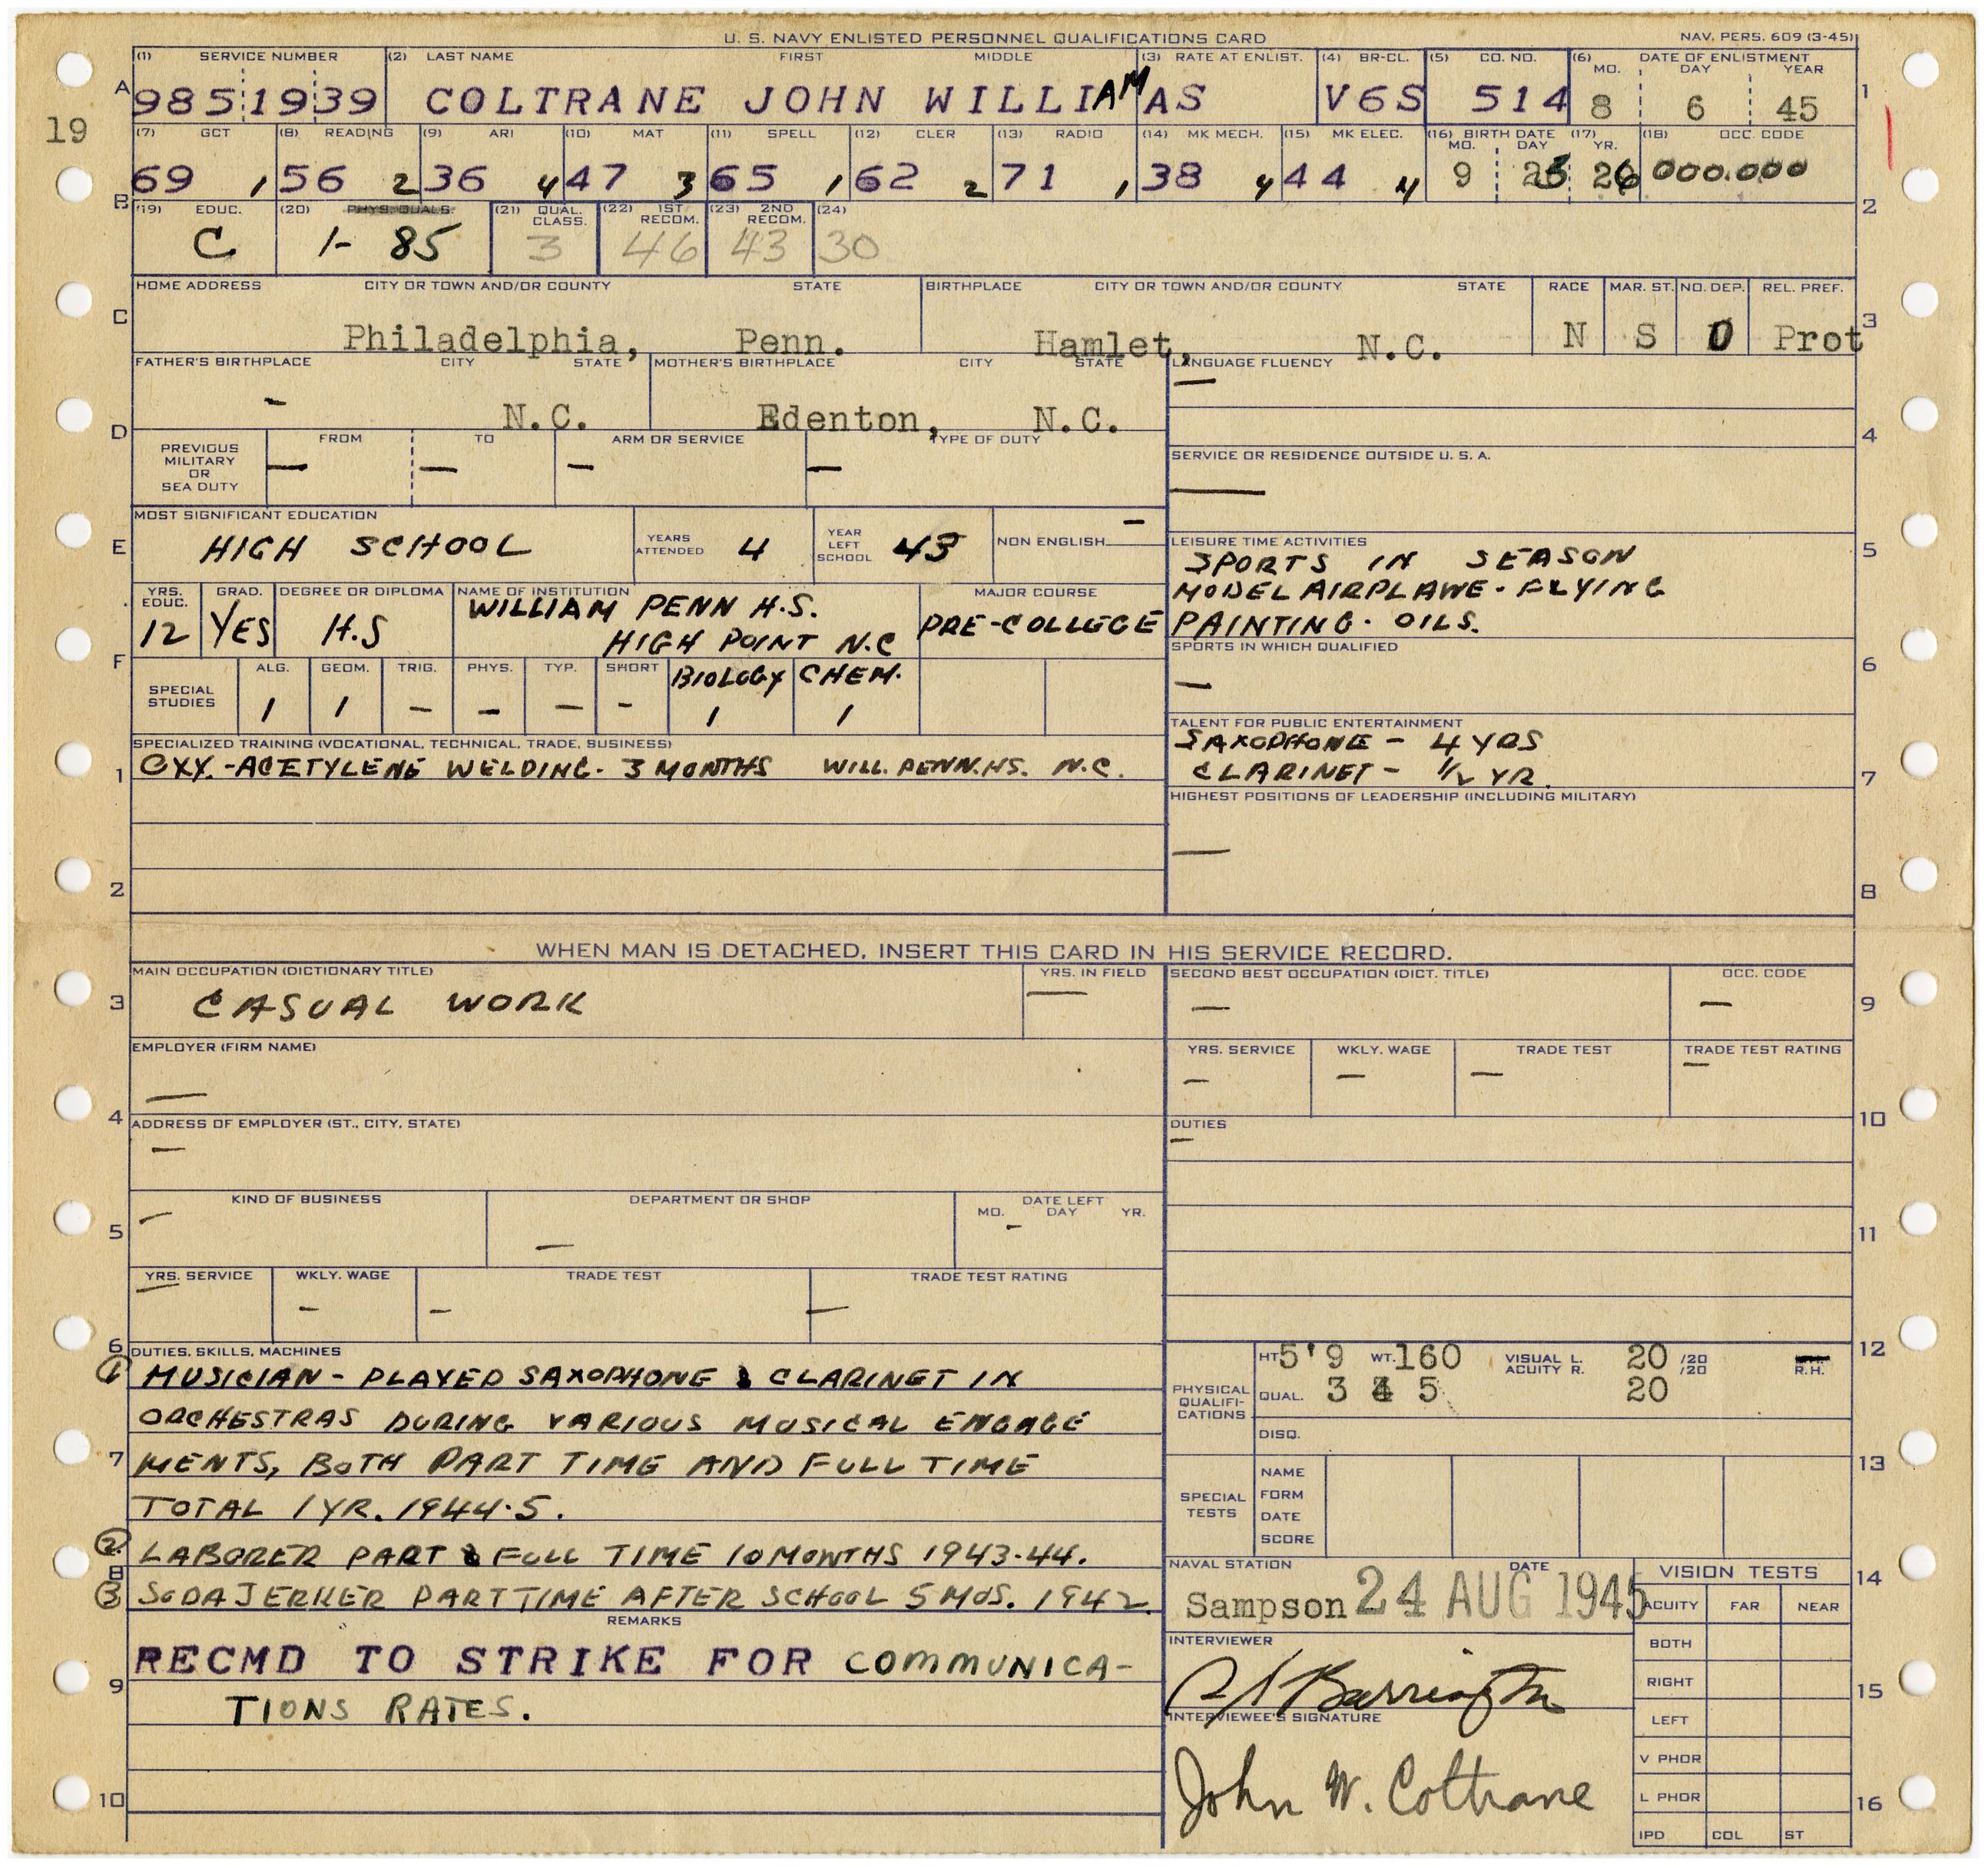 U. S. NAVY ENLISTED PERSONNEL QUALIFICATIONS CARD NAV. PERS. 609 (3-45)
(1) SERVICE NUMBER (2) LAST NAME FIRST MIDDLE (3) RATE AT ENLIST. (4) BR-CL. (5) CO. NO. (6) DATE OF ENLISTMENT
MO. DAY YEAR
A 9851939 COLTRANE JOHN WILLIAM AS V6S 514 8 6 45 1
19
(7) GCT (8) READING (9) ARI (10) MAT (11) SPELL (12) CLER (13) RADIO (14) MK MECH. (15) MK ELEC. (16) BIRTH DATE (17) (18) OCC. CODE
MO. DAY YR.
69 1 56 2 36 4 47 3 65 1 62 2 71 1 38 4 44 4 9 23 26 000.000
B 2
(19) EDUC. (20) PHYS. QUALS. (21) QUAL. CLASS. (22) 1ST RECOM. (23) 2ND RECOM. (24)
C 1- 85 3 46 43 30
HOME ADDRESS CITY OR TOWN AND/OR COUNTY STATE BIRTHPLACE CITY OR TOWN AND/OR COUNTY STATE RACE MAR. ST. NO. DEP. REL. PREF.
C Philadelphia, Penn. Hamlet, N.C. N S 0 Prot 3
FATHER'S BIRTHPLACE CITY STATE MOTHER'S BIRTHPLACE CITY STATE LANGUAGE FLUENCY
— N.C. Edenton, N.C. —
D 4
PREVIOUS MILITARY OR SEA DUTY FROM TO ARM OR SERVICE TYPE OF DUTY
— — — —
SERVICE OR RESIDENCE OUTSIDE U. S. A.
—
MOST SIGNIFICANT EDUCATION
E HIGH SCHOOL YEARS ATTENDED 4 YEAR LEFT SCHOOL 43 NON ENGLISH — 5
LEISURE TIME ACTIVITIES
SPORTS IN SEASON
MODEL AIRPLANE - FLYING
PAINTING - OILS.
YRS. EDUC. GRAD. DEGREE OR DIPLOMA NAME OF INSTITUTION MAJOR COURSE
12 YES H.S WILLIAM PENN H.S.
HIGH POINT N.C PRE-COLLEGE
SPORTS IN WHICH QUALIFIED
—
F 6
SPECIAL STUDIES ALG. GEOM. TRIG. PHYS. TYP. SHORT BIOLOGY CHEM.
1 1 — — — — 1 1
TALENT FOR PUBLIC ENTERTAINMENT
SAXOPHONE - 4 YRS
CLARINET - 1/2 YR.
7
SPECIALIZED TRAINING (VOCATIONAL, TECHNICAL, TRADE, BUSINESS)
1 OXY.-ACETYLENE WELDING - 3 MONTHS WILL. PENN. HS. N.C.
HIGHEST POSITIONS OF LEADERSHIP (INCLUDING MILITARY)
—
2 8
WHEN MAN IS DETACHED, INSERT THIS CARD IN HIS SERVICE RECORD.
MAIN OCCUPATION (DICTIONARY TITLE) YRS. IN FIELD SECOND BEST OCCUPATION (DICT. TITLE) OCC. CODE
3 CASUAL WORK — — — 9
EMPLOYER (FIRM NAME) YRS. SERVICE WKLY. WAGE TRADE TEST TRADE TEST RATING
— — — — —
4 10
ADDRESS OF EMPLOYER (ST., CITY, STATE) DUTIES
— —
KIND OF BUSINESS DEPARTMENT OR SHOP DATE LEFT
MO. DAY YR.
— — -
5 11
YRS. SERVICE WKLY. WAGE TRADE TEST TRADE TEST RATING
— — — —
6 12
DUTIES, SKILLS, MACHINES
(1) MUSICIAN - PLAYED SAXOPHONE & CLARINET IN
ORCHESTRAS DURING VARIOUS MUSICAL ENGAGE
7 MENTS, BOTH PART TIME AND FULL TIME
TOTAL 1 YR. 1944-5.
(2) LABORER PART & FULL TIME 10 MONTHS 1943-44.
8
(3) SODA JERKER PART TIME AFTER SCHOOL 5 MOS. 1942
PHYSICAL QUALIFI-CATIONS
HT. 5'9 WT. 160 VISUAL L. 20 /20 R.H.
ACUITY R. 20 /20
QUAL. 3 4 5
DISQ.
13
SPECIAL TESTS
NAME
FORM
DATE
SCORE
NAVAL STATION DATE VISION TESTS 14
Sampson 24 AUG 1945
ACUITY FAR NEAR
REMARKS
RECMD TO STRIKE FOR COMMUNICA-
9 TIONS RATES.
10
INTERVIEWER
INTERVIEWEE'S SIGNATURE
John W. Coltrane
BOTH
RIGHT
15
LEFT
V PHOR
L PHOR
16
IPD COL ST